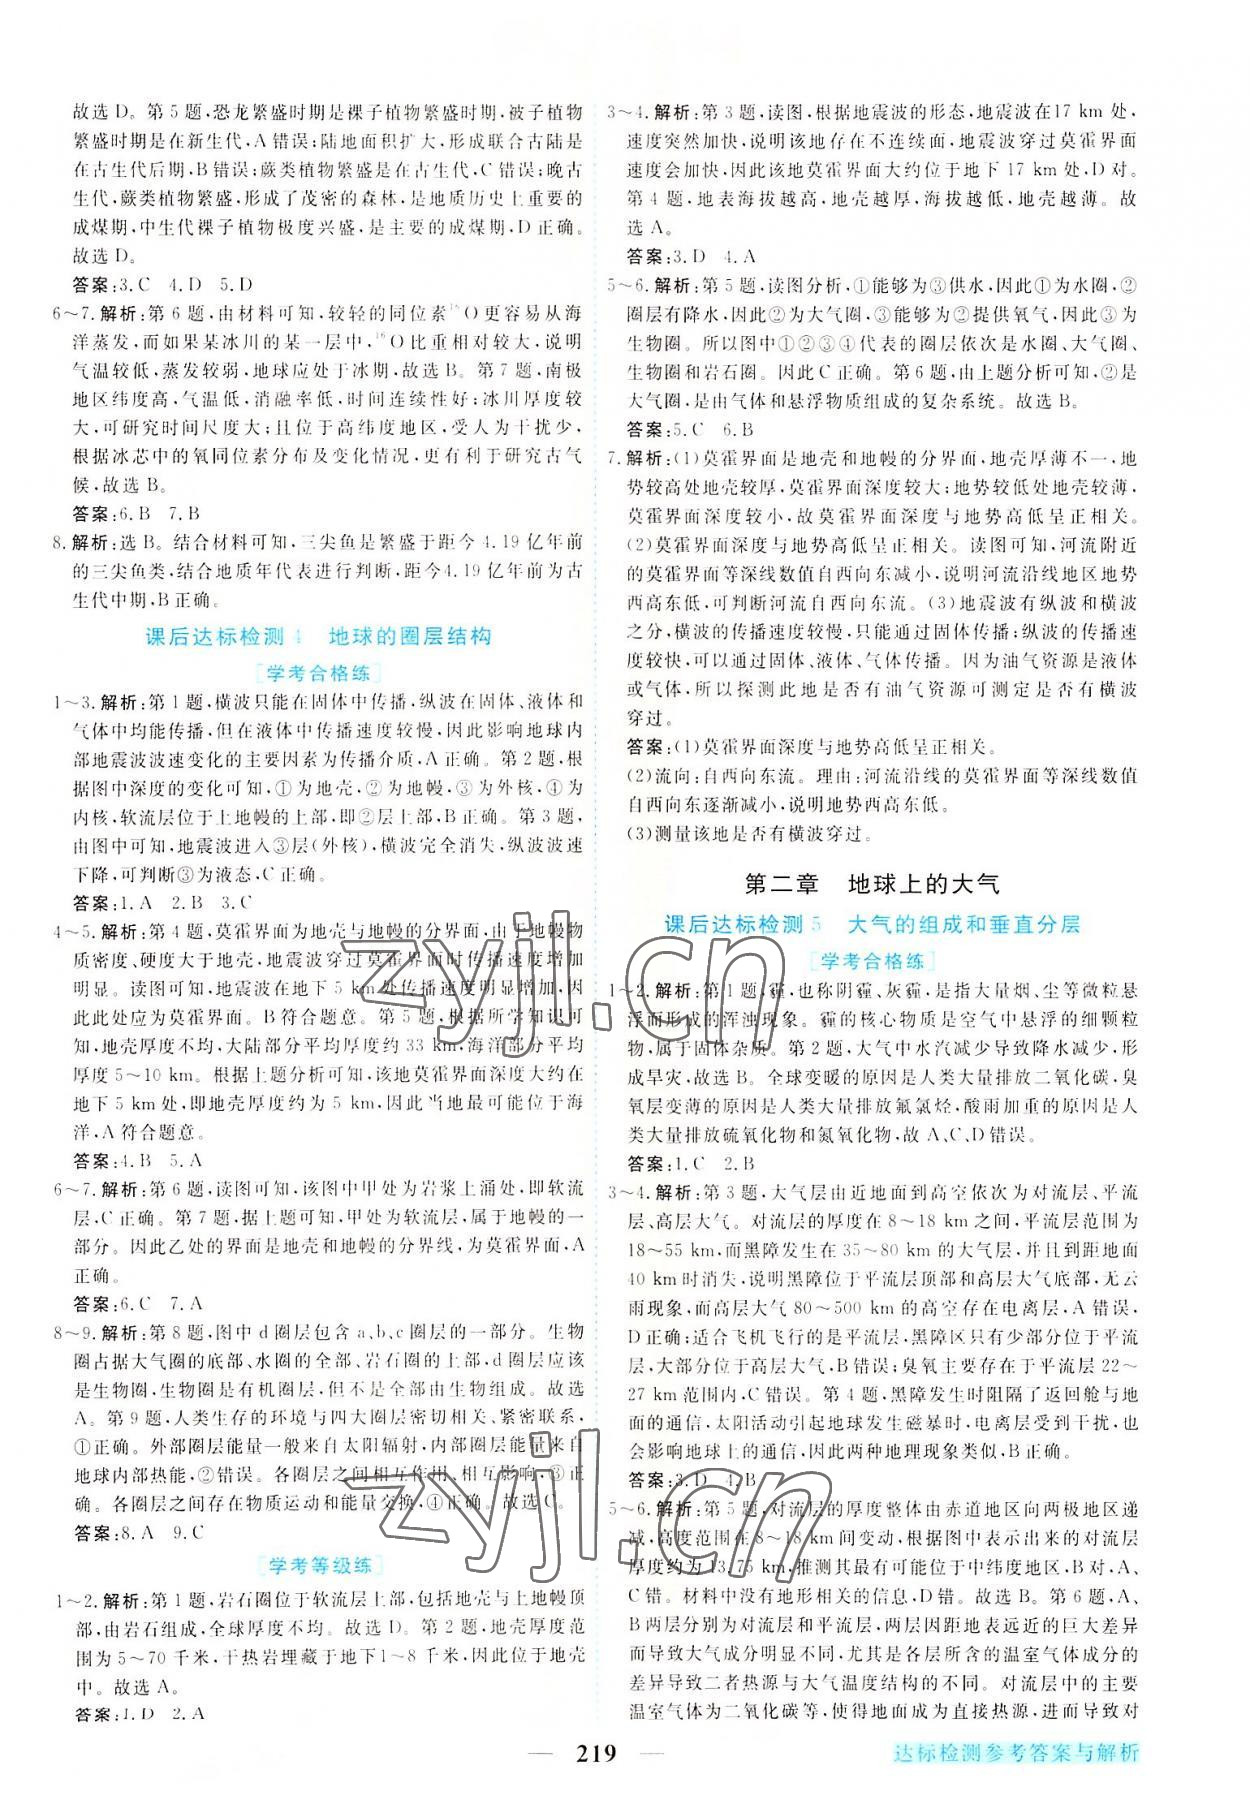 故选 D。第 5 题,恐龙繁盛时期是裸子植物繁盛时期,被子植物
繁盛时期是在新生代,A 错误;陆地面积扩大,形成联合古陆是
在古生代后期,B 错误;蕨类植物繁盛是在古生代,C 错误;晚古
生代,蕨类植物繁盛,形成了茂密的森林,是地质历史上重要的
成煤期,中生代裸子植物极度兴盛,也是主要的成煤期,D 正确。
故选 D。
答案:3.C 4.D 5.D
6～7.解析:第 6 题,由材料可知,较轻的同位素¹⁶O 更容易从海
洋蒸发,而如果某冰川的某一层中,¹⁶O 比重相对较大,说明
气温较低,蒸发较弱,地球应处于冰期,故选 B。第 7 题,南极
地区纬度高,气温低,消融率低,时间连续性好;冰川厚度较
大,可研究时间尺度大;且位于高纬度地区,受人为干扰少,
根据冰芯中的氧同位素分布及变化情况,更有利于研究古气
候,故选 B。
答案:6.B 7.B
8.解析:选 B。结合材料可知,三尖鱼是繁盛于距今 4.19 亿年前
的三尖鱼类,结合地质年代表进行判断,距今 4.19 亿年前为古
生代中期,B 正确。
课后达标检测 4 地球的圈层结构
[学考合格练]
1～3.解析:第 1 题,横波只能在固体中传播,纵波在固体、液体和
气体中均能传播,但在液体中传播速度较慢,因此影响地球内
部地震波波速变化的主要因素为传播介质,A 正确。第 2 题,根
据图中深度的变化可知,①为地壳,②为地幔,③为外核,④为
内核,软流层位于上地幔的上部,即②层上部,B 正确。第 3 题,
由图中可知,地震波进入③层(外核),横波完全消失,纵波波速
下降,可判断③为液态,C 正确。
答案:1.A 2.B 3.C
4～5.解析:第 4 题,莫霍界面为地壳与地幔的分界面,由于地幔的
物质密度、硬度大于地壳,地震波穿过莫霍界面时速度增加
明显。读图可知,地震波在地下 5 km 处传播速度明显增加,因
此此处应为莫霍界面。B 符合题意。第 5 题,根据所学知识可
知,地壳厚度不均,大陆部分平均厚度约 33 km,海洋部分平均
厚度 5～10 km。根据上题分析可知,该地莫霍界面深度大约在
地下 5 km 处,即地壳厚度约为 5 km,因此当地最可能位于海
洋,A 符合题意。
答案:4.B 5.A
6～7.解析:第 6 题,读图可知,该图中甲处为岩浆上涌处,即软流
层,C 正确。第 7 题,据上题可知,甲处为软流层,属于地幔的一
部分。因此乙处的界面是地壳和地幔的分界线,为莫霍界面,A
正确。
答案:6.C 7.A
8～9.解析:第 8 题,图中 d 圈层包含 a、b、c 圈层的一部分。生物
圈占据大气圈的底部、水圈的全部、岩石圈的上部,d 圈层应该
是生物圈,生物圈是有机圈层,但不是全部由生物组成。故选
A。第 9 题,人类生存的环境与四大圈层密切相关、紧密联系,
①正确。外部圈层能量一般来自太阳辐射,内部圈层能量来自
地球内部热能,②错误。各圈层之间相互作用、相互影响,③正
确。各圈层之间存在物质运动和能量交换,④正确。故选 C。
答案:8.A 9.C
[学考等级练]
1～2.解析:第 1 题,岩石圈位于软流层上部,包括地壳与上地幔顶
部,由岩石组成,全球厚度不均。故选 D。第 2 题,地壳厚度范
围为 5～70 千米,干热岩埋藏于地下 1～8 千米,因此位于地壳
中。故选 A。
答案:1.D 2.A
3～4.解析:第 3 题,读图,根据地震波的形态,地震波在 17 km 处,
速度突然加快,说明该地存在不连续面,地震波穿过莫霍界面
速度会加快,因此该地莫霍界面大约位于地下 17 km 处,D 对。
第 4 题,地表海拔越高,地壳越厚,海拔越低,地壳越薄。故
选 A。
答案:3.D 4.A
5～6.解析:第 5 题,读图分析,①能够为③供水,因此①为水圈,②
圈层有降水,因此②为大气圈,③能够为②提供氧气,因此③为
生物圈。所以图中①②③④代表的圈层依次是水圈、大气圈、
生物圈和岩石圈。因此 C 正确。第 6 题,由上题分析可知,②是
大气圈,是由气体和悬浮物质组成的复杂系统。故选 B。
答案:5.C 6.B
7.解析:(1)莫霍界面是地壳和地幔的分界面,地壳厚薄不一,地
势较高处地壳较厚,莫霍界面深度较大;地势较低处地壳较薄,
莫霍界面深度较小,故莫霍界面深度与地势高低呈正相关。
(2)莫霍界面深度与地势高低呈正相关。读图可知,河流附近
的莫霍界面等深线数值自西向东减小,说明河流沿线地区地势
西高东低,可判断河流自西向东流。(3)地震波有纵波和横波
之分,横波的传播速度较慢,只能通过固体传播;纵波的传播速
度较快,可以通过固体、液体、气体传播。因为油气资源是液体
或气体,所以探测此地是否有油气资源可测定是否有横波
穿过。
答案:(1)莫霍界面深度与地势高低呈正相关。
(2)流向:自西向东流。理由:河流沿线的莫霍界面等深线数值
自西向东逐渐减小,说明地势西高东低。
(3)测量该地是否有横波穿过。
第二章 地球上的大气
课后达标检测 5 大气的组成和垂直分层
[学考合格练]
1～2.解析:第 1 题,霾,也称阴霾、灰霾,是指大量烟、尘等微粒悬
浮而形成的浑浊现象。霾的核心物质是空气中悬浮的细颗粒
物,属于固体杂质。第 2 题,大气中水汽减少导致降水减少,形
成旱灾,故选 B。全球变暖的原因是人类大量排放二氧化碳,臭
氧层变薄的原因是人类大量排放氟氯烃,酸雨加重的原因是人
类大量排放硫氧化物和氮氧化物,故 A、C、D 错误。
答案:1.C 2.B
3～4.解析:第 3 题,大气层由近地面到高空依次为对流层、平流
层、高层大气。对流层的厚度在 8～18 km 之间,平流层范围为
18～55 km,而黑障发生在 35～80 km 的大气层,并且到距地面
40 km 时消失,说明黑障位于平流层顶部和高层大气底部,无云
雨现象,而高层大气 80～500 km 的高空存在电离层,A 错误,
D 正确;适合飞机飞行的是平流层,黑障区只有少部分位于平流
层,大部分位于高层大气,B 错误;臭氧主要存在于平流层 22～
27 km 范围内,C 错误。第 4 题,黑障发生时阻隔了返回舱与地
面的通信,太阳活动引起地球发生磁暴时,电离层受到干扰,也
会影响地球上的通信,因此两种地理现象类似,B 正确。
答案:3.D 4.B
5～6.解析:第 5 题,对流层的厚度整体由赤道地区向两极地区递
减,高度范围在 8～18 km 间变动,根据图中表示出来的对流层
厚度约为 13.75 km,推测其最有可能位于中纬度地区,B 对,A、
C 错。材料中没有地形相关的信息,D 错。故选 B。第 6 题,A、
B 两层分别为对流层和平流层,两者因距地表远近的巨大差异
而导致大气成分明显不同,尤其是各层所含的温室气体成分的
差异导致二者热源与大气温度结构的不同。对流层中的主要
温室气体为二氧化碳等,使得地面成为直接热源,进而导致对
219
达标检测参考答案与解析
zyjl.cn
zyjl.cn